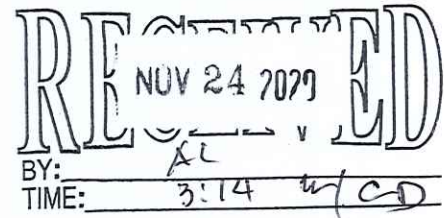 RECEIVED
NOV 24 2020
BY: AL
TIME: 3:14 w/ CD